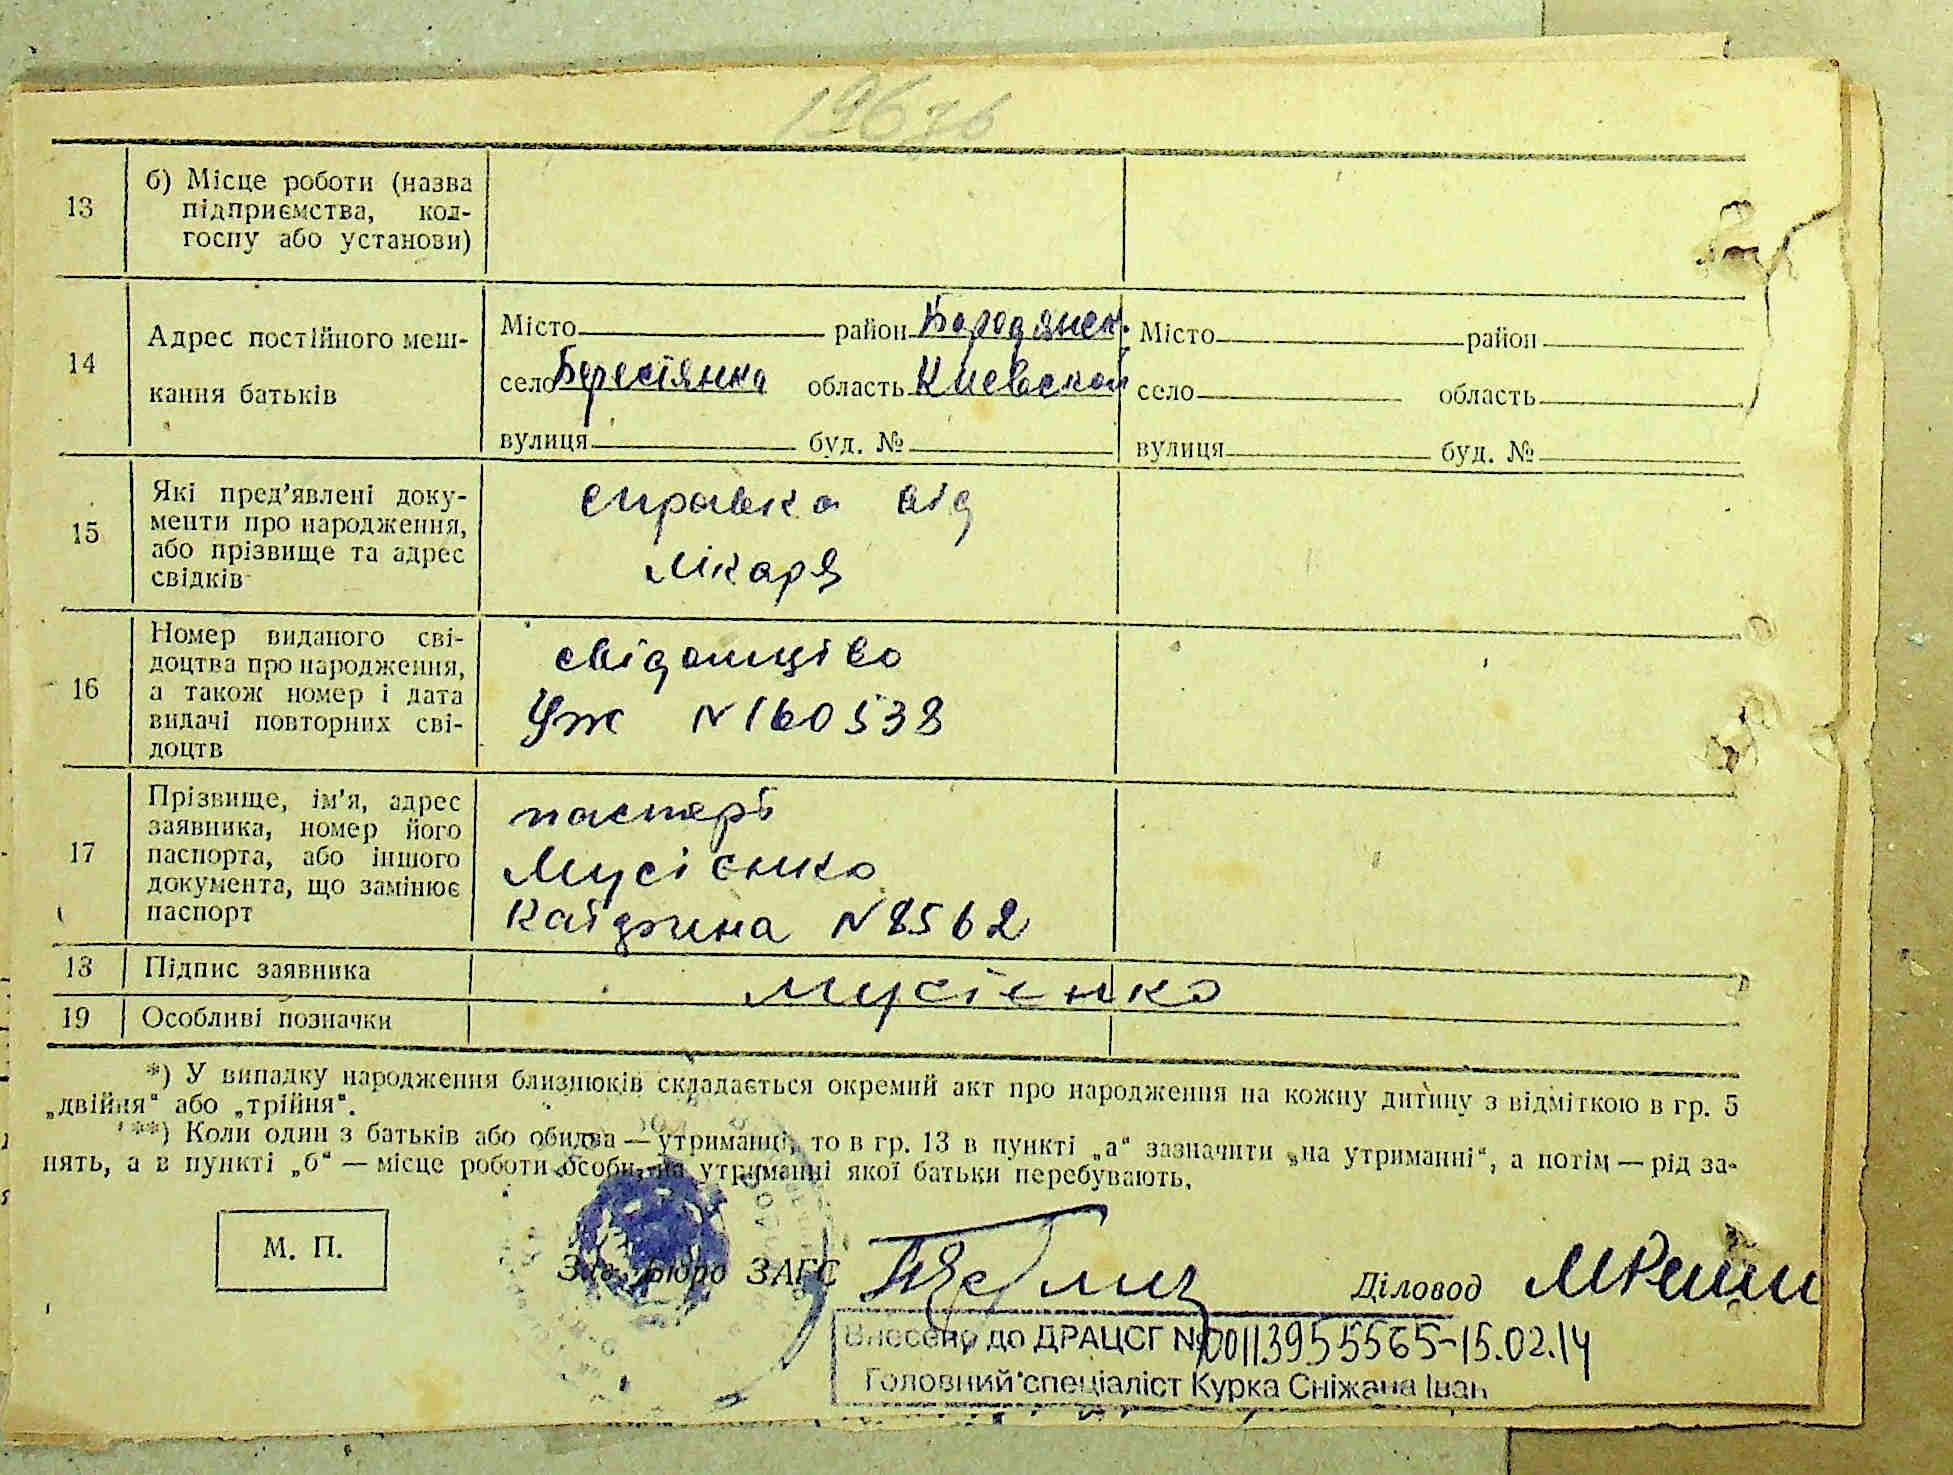 13
б) Місце роботи (назва
підприємства, кол-
госпу або установи)
14
Адрес постійного меш-
кання батьків
Місто район Бородянск.
село Берестянка область Киевской
вулиця буд. №
Місто район
село область
вулиця буд. №
15
Які пред’явлені доку-
менти про народження,
або прізвище та адрес
свідків
справка від
лікаря
16
Номер виданого сві-
доцтва про народження,
а також номер і дата
видачі повторних сві-
доцтв
N 160538
17
Прізвище, ім’я, адрес
заявника, номер його
паспорта, або іншого
документа, що замінює
паспорт
паспорт
Мусієнко
N 8562
18 Підпис заявника Мусієнко
19 Особливі позначки
*) У випадку народження близнюків складається окремий акт про народження на кожну дитину з відміткою в гр. 5
„двійня“ або „трійня“.
**) Коли один з батьків або обидва — утриманці, то в гр. 13 в пункті „а“ зазначити „на утриманні“, а потім — рід за-
нять, а в пункті „б“ — місце роботи особи, на утриманні якої батьки перебувають.
М. П.
Зав. Бюро ЗАГС
Діловод
Внесено до ДРАЦСГ № 00113955565-15.02.14
Головний спеціаліст Курка Сніжана Іван